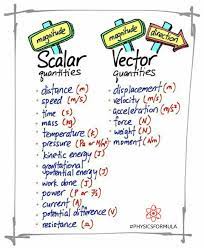 magnitude
Scalar
quantities
- distance (m)
- speed (m/s)
- time (s)
- mass (kg)
- temperature (K)
- pressure (Pa or N/m²)
- kinetic energy (J)
- gravitational
potential energy (J)
- work done (J)
- power (P or J/s)
- current (A)
- potential difference (V)
- resistance (Ω)
magnitude
direction
Vector
quantities
- displacement (m)
- velocity (m/s)
- acceleration (m/s²)
- force (N)
- weight (N)
- moment (Nm)
#PHYSICSFORMULA